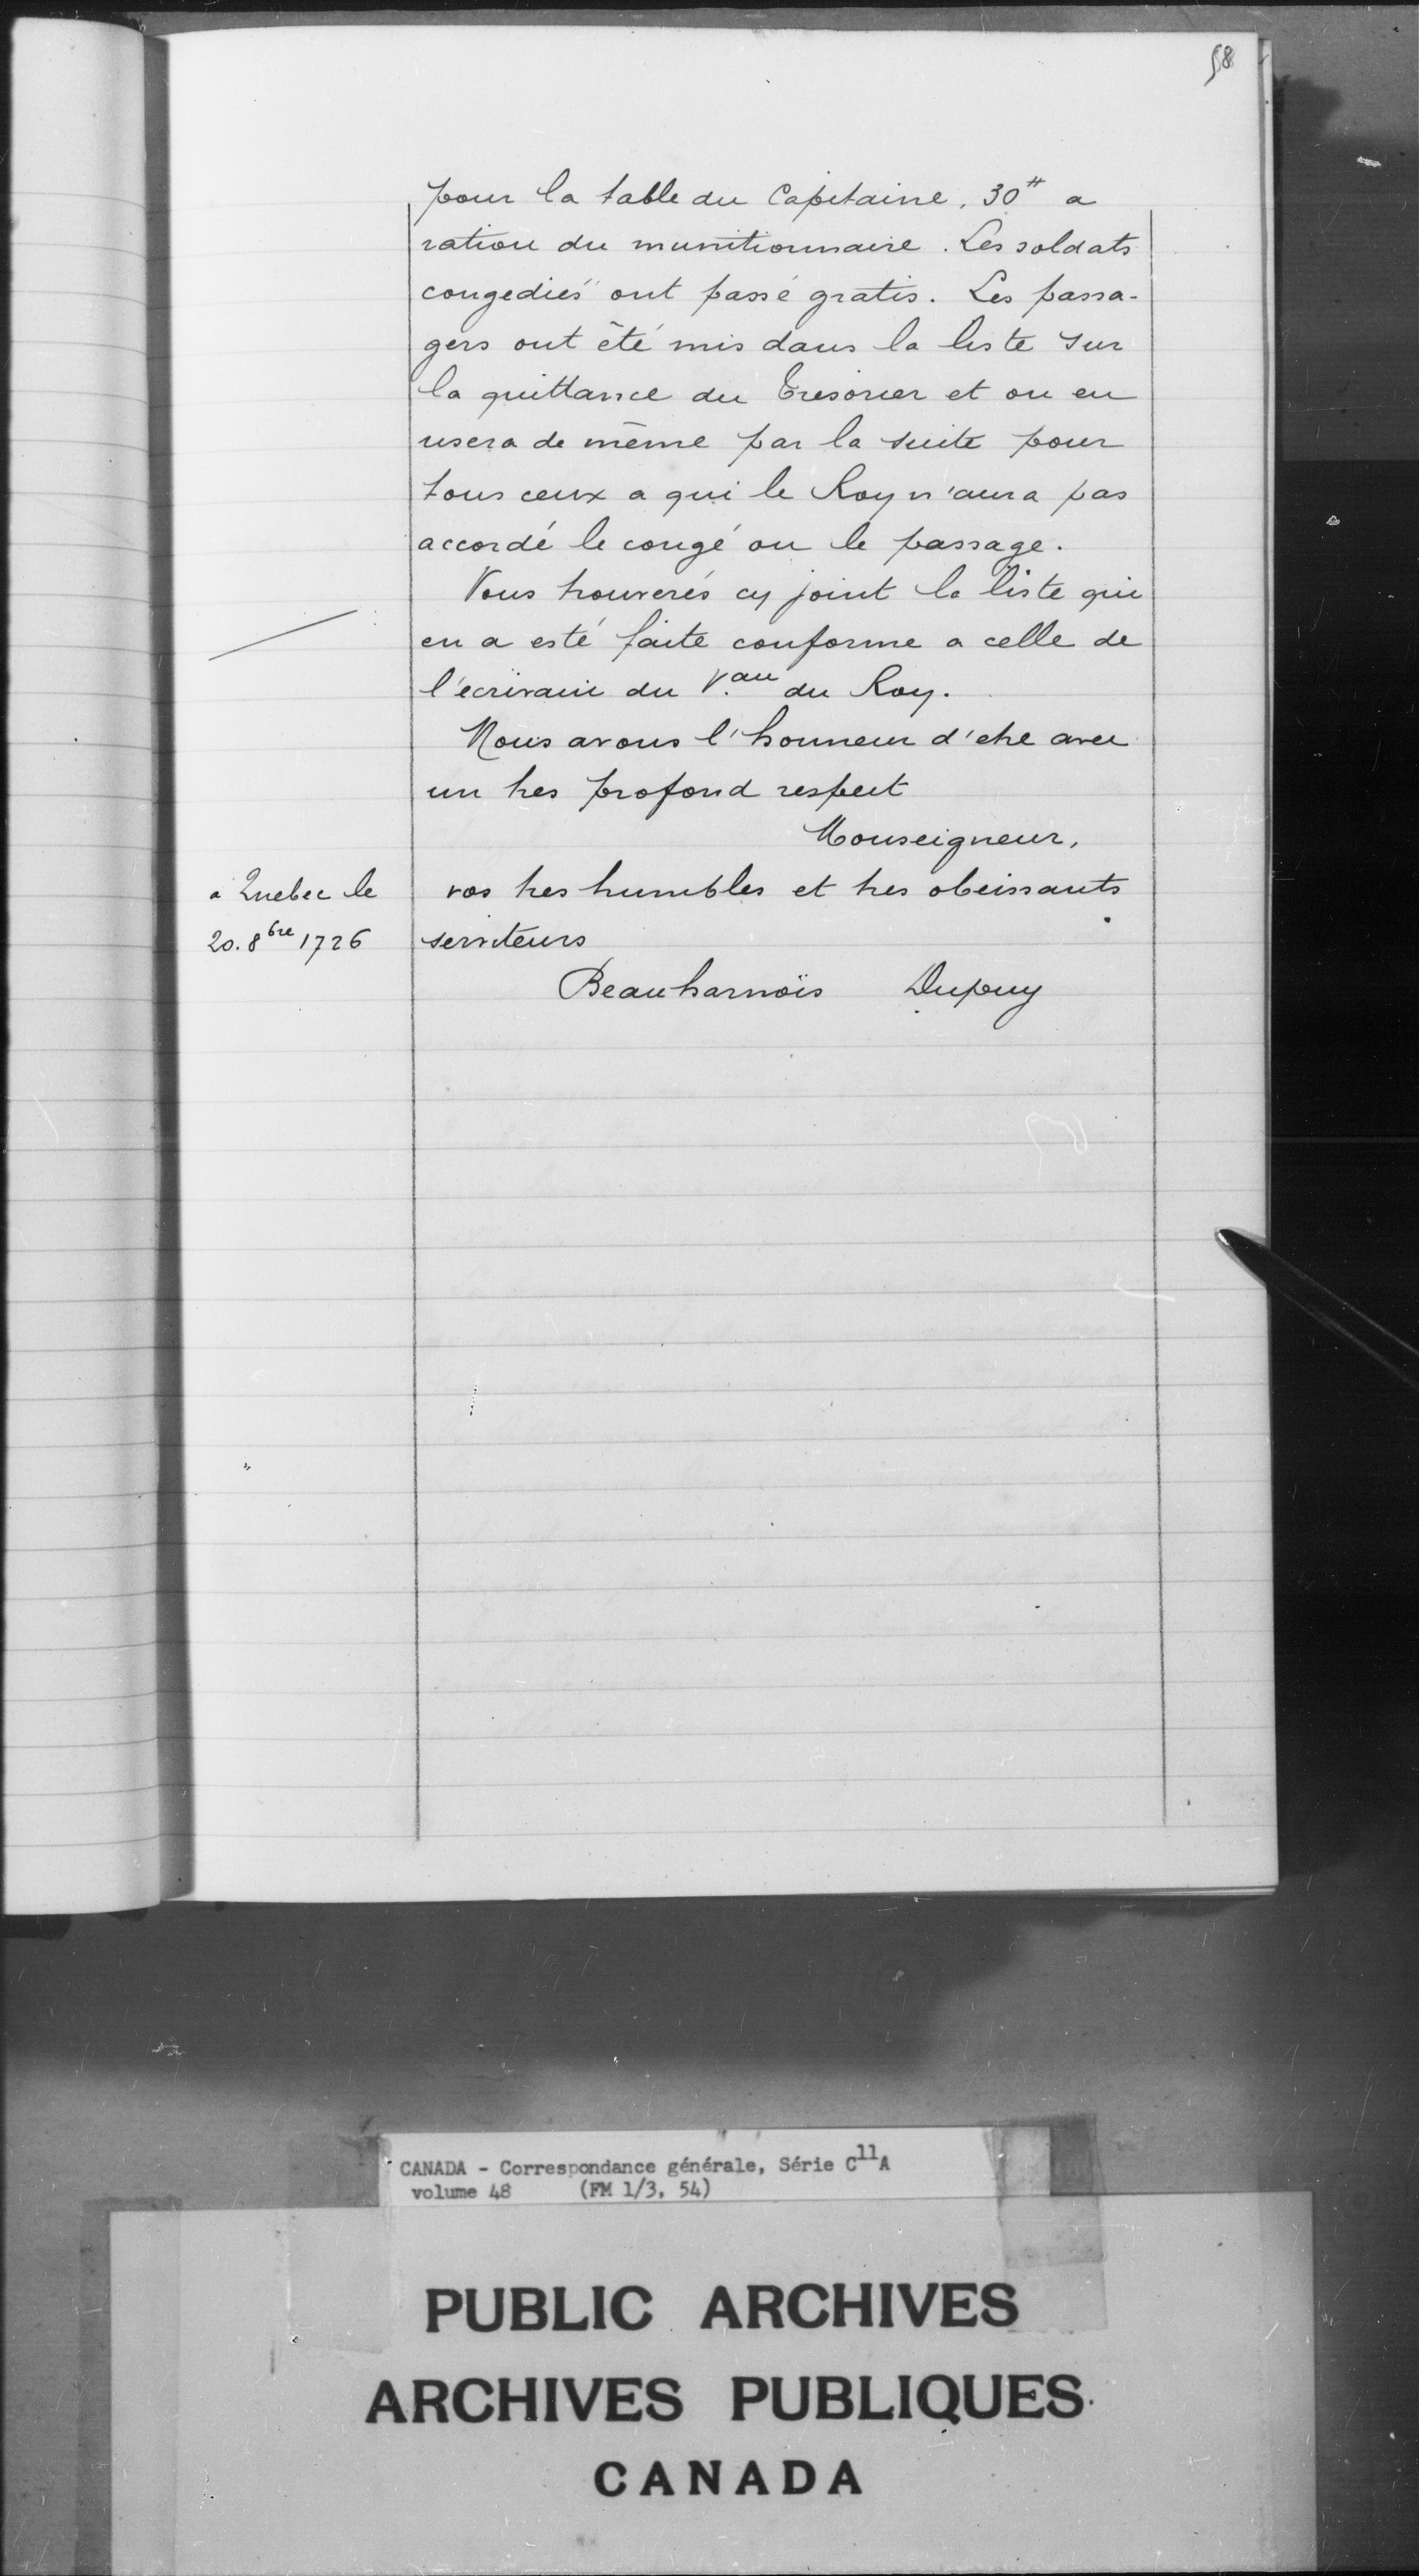 58
pour la table du Capitaine, 30# a
ration du munitionnaire. Les soldats
congediés ont passé gratis. Les passa-
gers ont été mis dans la liste sur
la quittance du Tresorier et on en
usera de même par la suite pour
tous ceux a qui le Roy n'aura pas
accordé le congé ou le passage.
Vous trouverés cy joint la liste qui
en a esté faite conforme a celle de
l'ecrivain du V.au du Roy.
Nous avons l'honneur d'etre avec
un tres profond respect
Monseigneur,
vos tres humbles et tres obeissants
serviteurs
à Quebec le
20. 8bre 1726
Beauharnois Dupuy
CANADA - Correspondance générale, Série C11A
volume 48 (FM 1/3, 54)
PUBLIC ARCHIVES
ARCHIVES PUBLIQUES
CANADA